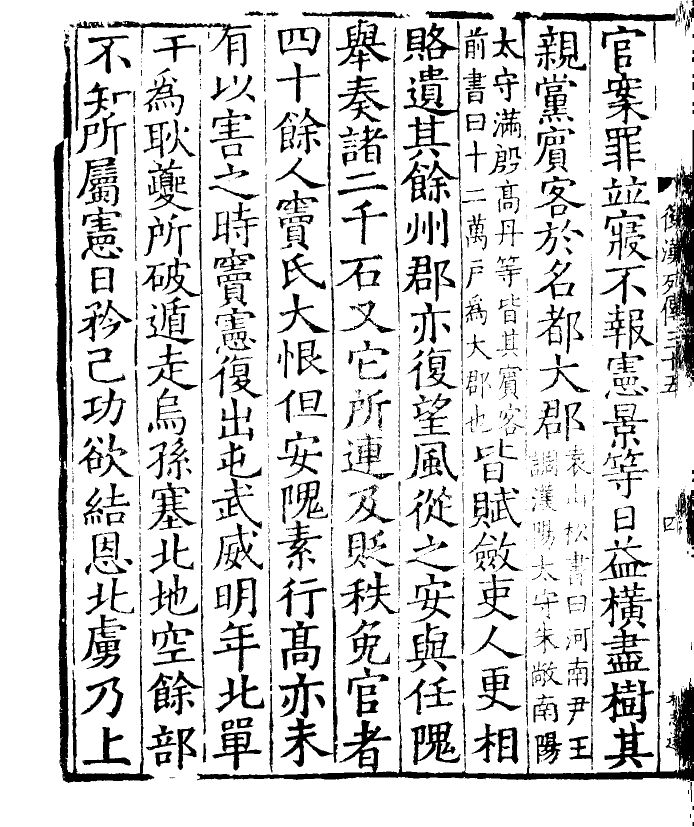 後漢列傳三十五 四
官案罪竝寢不報憲景等日益橫盡樹其
親黨賓客於名都大郡
袁山松書曰河南尹王
調漢陽太守朱敞南陽
太守滿殷高丹等皆其賓客
前書曰十二萬戶爲大郡也
皆賦斂吏人更相
賂遺其餘州郡亦復望風從之安與任隗
舉奏諸二千石又它所連及貶秩免官者
四十餘人竇氏大恨但安隗素行高亦未
有以害之時竇憲復出屯武威明年北單
于爲耿夔所破遁走烏孫塞北地空餘部
不知所屬憲日矜己功欲結恩北虜乃上